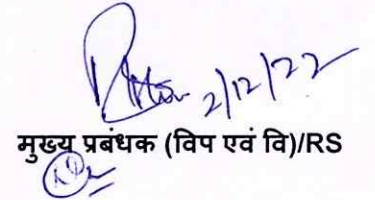 2/12/22
मुख्य प्रबंधक (विप एवं वि)/RS